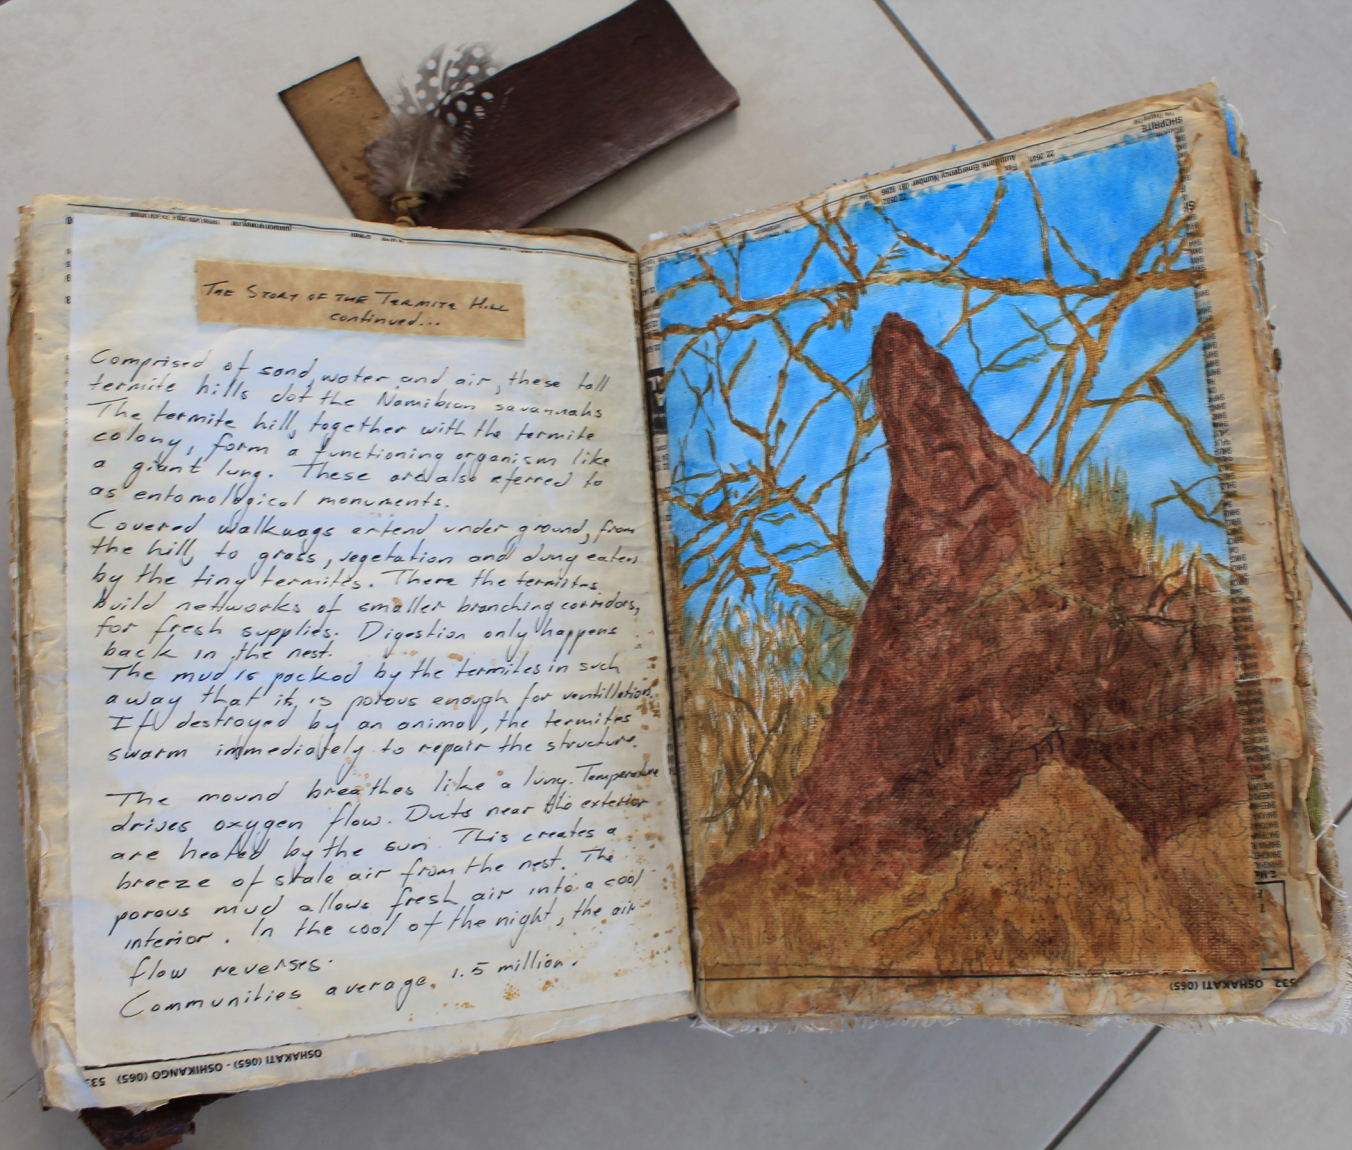 The Story of the Termite Hill
continued...
Comprised of sand, water and air, these tall
termite hills dot the Namibian savannahs
The termite hill, together with the termite
colony, form a functioning organism like
a giant lung. These are also eferred to
as entomological monuments.
Covered walkways extend under ground, from
the hill, to grass, vegetation and dung eaten
by the tiny termites. There the termites
build networks of smaller branching corridors,
for fresh supplies. Digestion only happens
back in the nest.
The mud is packed by the termites in such
away that it is porous enough for ventillation.
If destroyed by an animal, the termites
swarm immediately to repair the structure.
The mound breathes like a lung. Temperature
drives oxygen flow. Ducts near the exterior
are heated by the sun. This creates a
breeze of stale air from the nest. The
porous mud allows fresh air into a cool
interior. In the cool of the night, the air
flow reverses.
Communities average. 1.5 million.
OSHAKATI (065) - OSHIKANGO (065)
SHOPRITE
Fax
AutoBank Emergency Number
532 OSHAKATI (065)